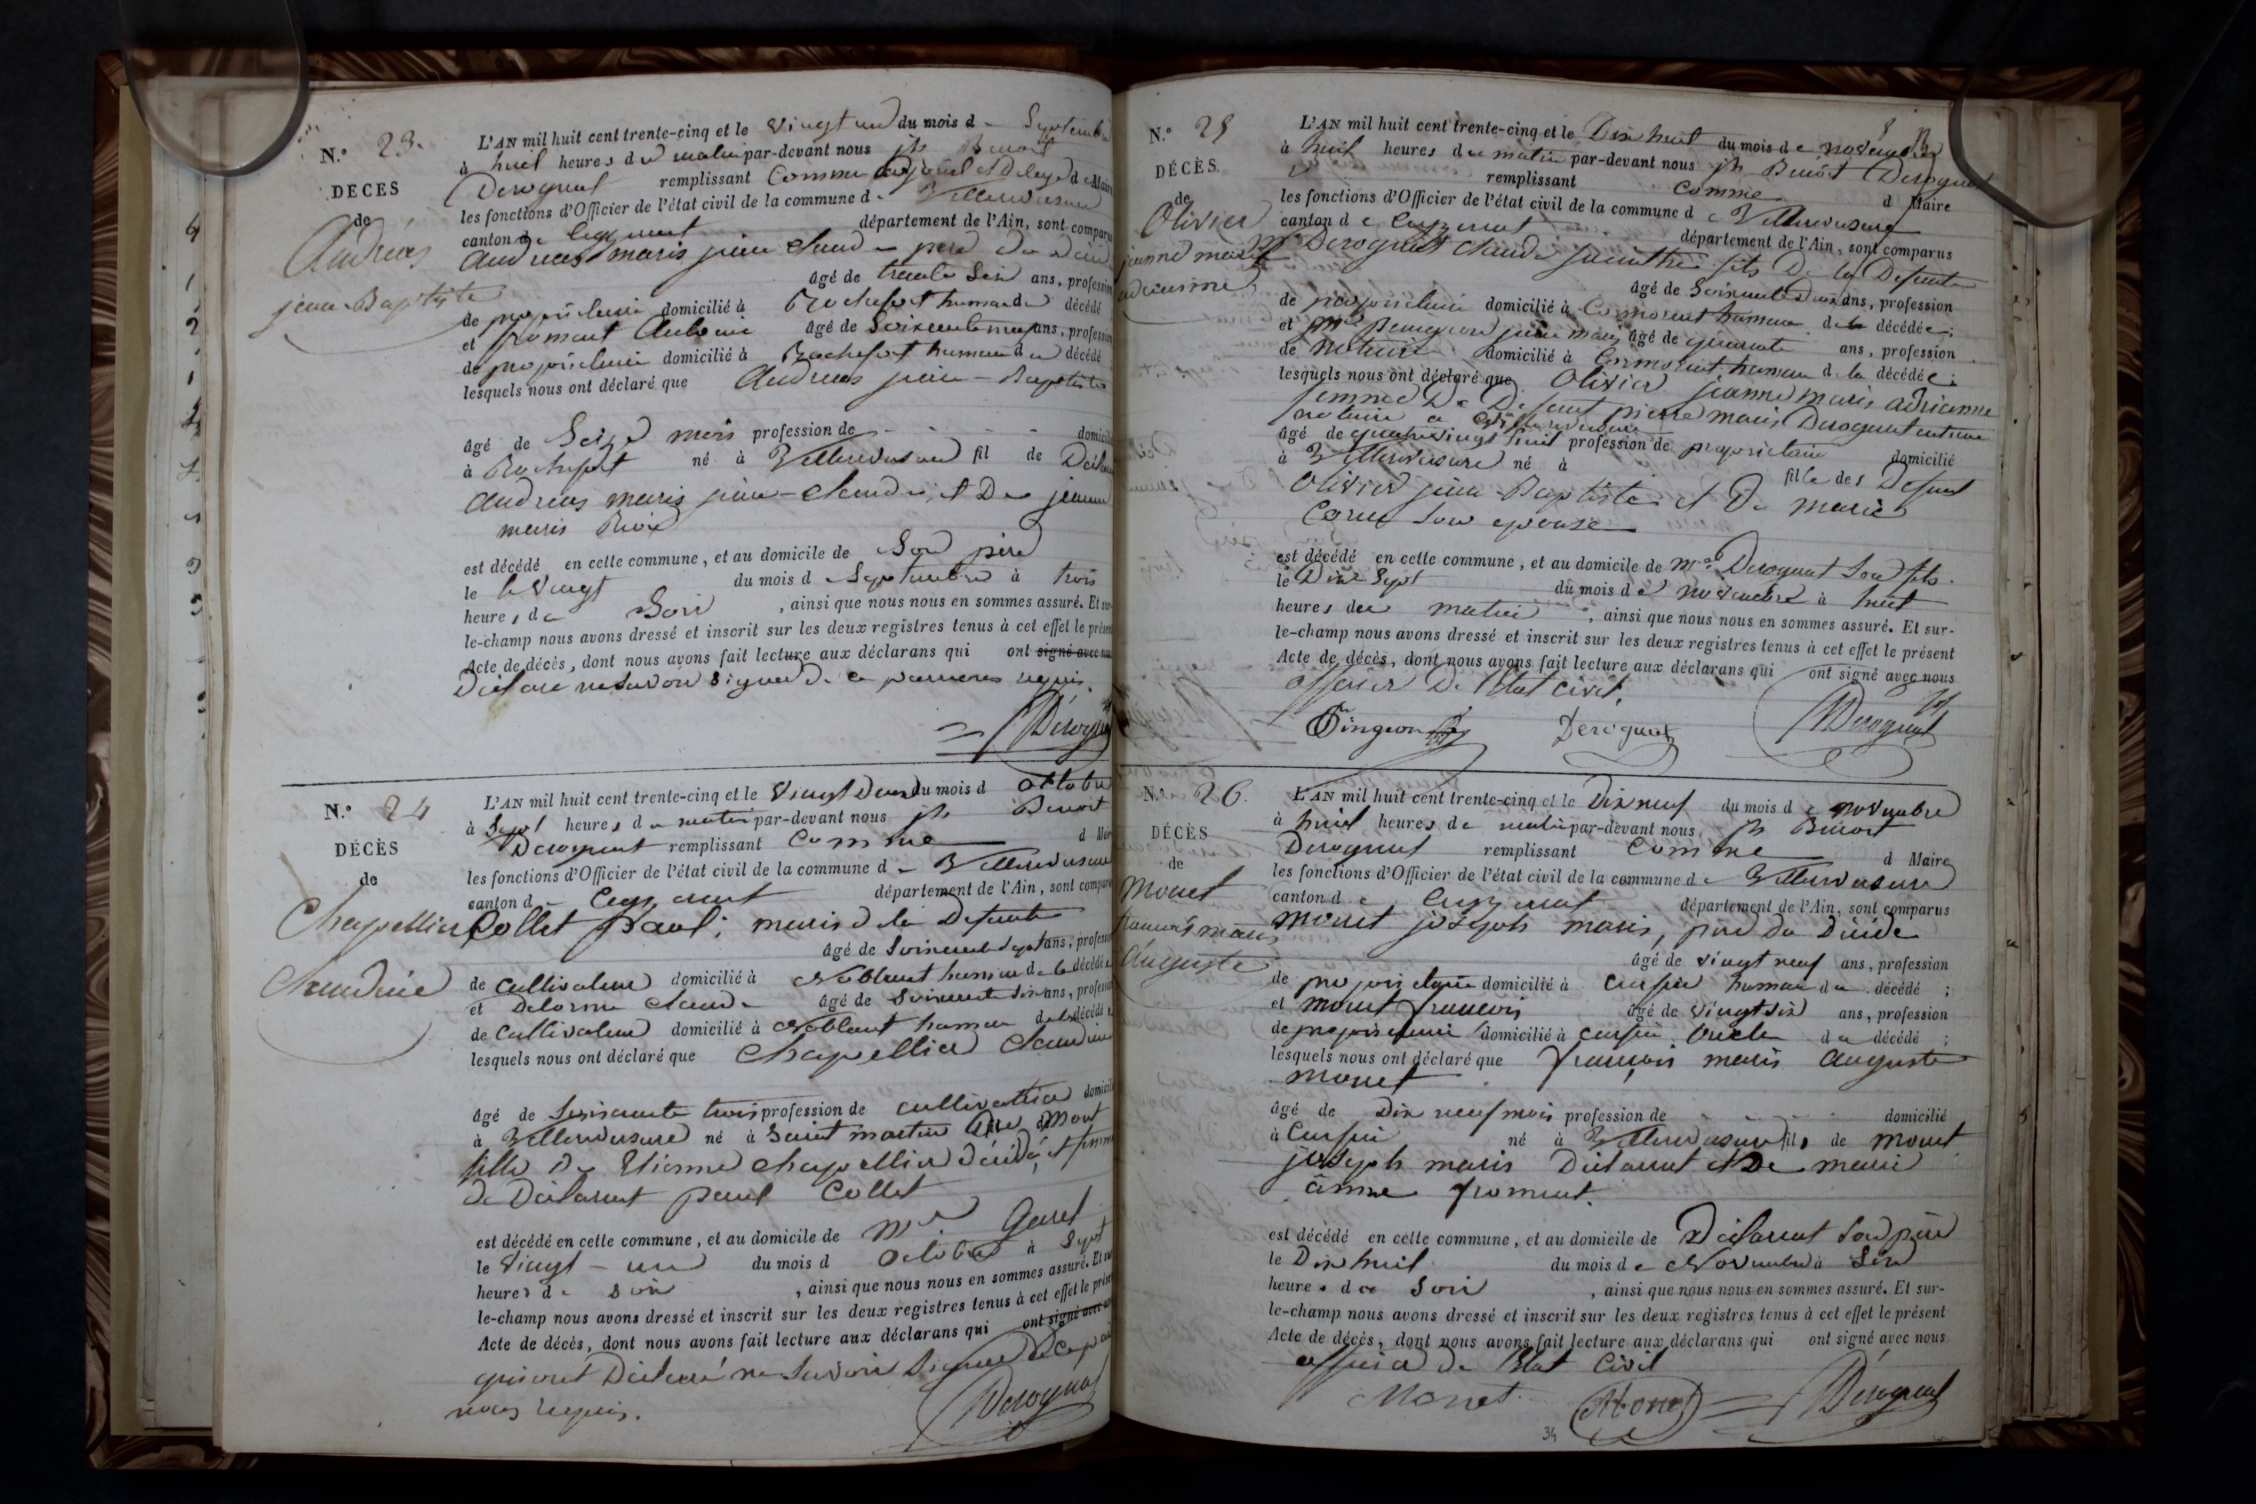 N.° 23.
DÉCÈS
de
Andréas
jean-Baptiste
L'AN mil huit cent trente-cinq et le vingt un du mois d Septembre
à huit heures du matin par-devant nous jh Benoit
Derognat remplissant comme adjoint et délégué d Maire
les fonctions d'Officier de l'état civil de la commune d Villereversure
canton de Ceyzeriat département de l'Ain, sont comparus
andreas marie jean claude père du
âgé de trente Six ans, profession
de propriétaire domicilié à Rochefort hameau du décédé
et froment âgé de Soixante ans, profession
de propriétaire domicilié à Rochefort hameau du décédé
lesquels nous ont déclaré que Andreas jean-Baptiste
âgé de Seize mois profession de - - - domicilié
à Rochefort né à Villereversure fil de
andreas marie jean-claude, et De jeanne
marie
est décédé en cette commune, et au domicile de Son père
le le vingt du mois de Septembre à trois
heures de Soir, ainsi que nous nous en sommes assuré. Et sur-
le-champ nous avons dressé et inscrit sur les deux registres tenus à cet effet le présent
Acte de décès, dont nous avons fait lecture aux déclarans qui ont signé avec nous
Déclaré ne savoir signer de ce par nous requis.
Derognat
N.° 24
DÉCÈS
de
Chapellier
Claudine
L'AN mil huit cent trente-cinq et le vingt Deux du mois d octobre
à Sept heures du matin par-devant nous jh Benoit
Derognat remplissant comme d Maire
les fonctions d'Officier de l'état civil de la commune de Villereversure
canton de Ceyzeriat département de l'Ain, sont comparus
Collet Paul, mari de la Defunte
âgé de Soixante Sept ans, profession
de Cultivateur domicilié à Noblant hameau de la décédée
et Delorme claude âgé de Soixante Six ans, profession
de Cultivateur domicilié à Noblant hameau de la décédée
lesquels nous ont déclaré que Chapellier Claudine
âgé de Soixante trois profession de cultivatrice domicilié
à Villereversure né à Saint martin du Mont
fille De Etienne Chapellier décédé, et femme
de Déclarant paul Collet
est décédé en cette commune, et au domicile de Mr
le vingt-un du mois d octobre à Sept
heures de Soir, ainsi que nous nous en sommes assuré. Et sur-
le-champ nous avons dressé et inscrit sur les deux registres tenus à cet effet le présent
Acte de décès, dont nous avons fait lecture aux déclarans qui ont signé avec nous
qui ont Déclaré ne Savoir Signer de ce par
nous requis.
Derognat
N.° 25
DÉCÈS
de
Olivier
jeanne marie
adrienne
L'AN mil huit cent trente-cinq et le Dix huit du mois de novembre
à huit heures du matin par-devant nous jh Benoit Derognat
remplissant comme d Maire
les fonctions d'Officier de l'état civil de la commune de Villereversure
canton de Ceyzeriat département de l'Ain, sont comparus
Mr Derognat Claude fils De la Defunte
âgé de Soixante Deux ans, profession
de propriétaire domicilié à Cormorent hameau de la décédée;
et Mr jean marie âgé de quarante ans, profession
de notaire domicilié à Cormorent hameau de la décédée;
lesquels nous ont déclaré que Olivier jeanne marie adrienne
femme De Defunt pierre marie Derognat
notaire a Villereversure
âgé de quatrevingt huit profession de propriétaire domicilié
à Villereversure né à fille des Defunt
Olivier jean Baptiste et De marie
son epouse
est décédé en cette commune, et au domicile de Mr Derognat Son fils.
le Dix Sept du mois de novembre à huit
heures du matin, ainsi que nous nous en sommes assuré. Et sur-
le-champ nous avons dressé et inscrit sur les deux registres tenus à cet effet le présent
Acte de décès, dont nous avons fait lecture aux déclarans qui ont signé avec nous
officier De l'Etat civil.
Derognat Derognat
N.° 26.
DÉCÈS
de
Monet
francois marie
Auguste
L'AN mil huit cent trente-cinq et le Dix neuf du mois de novembre
à huit heures du matin par-devant nous jh Benoit
Derognat remplissant comme d Maire
les fonctions d'Officier de l'état civil de la commune de Villereversure
canton de Ceyzeriat département de l'Ain, sont comparus
Monet joseph marie, père du Décédé
âgé de vingt neuf ans, profession
de propriétaire domicilié à Cuisia hameau du décédé;
et Monet francois âgé de vingt Six ans, profession
de propriétaire domicilié à Cuisia oncle du décédé;
lesquels nous ont déclaré que François marie Auguste
Monet
âgé de Dix neuf mois profession de domicilié
à Cuisia né à Villereversure fils de Monet
joseph marie Déclarant et De marie
anne froment.
est décédé en cette commune, et au domicile de Déclarant Son père
le Dix huit du mois de Novembre à Six
heures du Soir, ainsi que nous nous en sommes assuré. Et sur-
le-champ nous avons dressé et inscrit sur les deux registres tenus à cet effet le présent
Acte de décès, dont nous avons fait lecture aux déclarans qui ont signé avec nous
officier de l'Etat Civil
Monet Monet Derognat
34